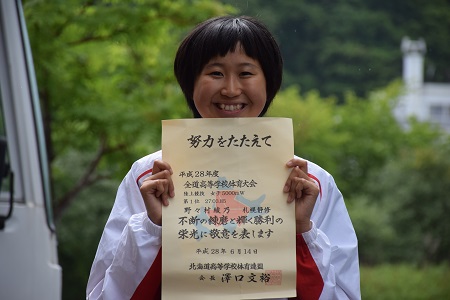 努力をたたえて
平成28年度
全道高等学校体育大会
陸上競技 女子5000mW
第1位
野々村綾乃 札幌静修
不断の錬磨と輝く勝利の
栄光に敬意を表します
平成28年6月14日
北海道高等学校体育連盟
会長 澤口文裕